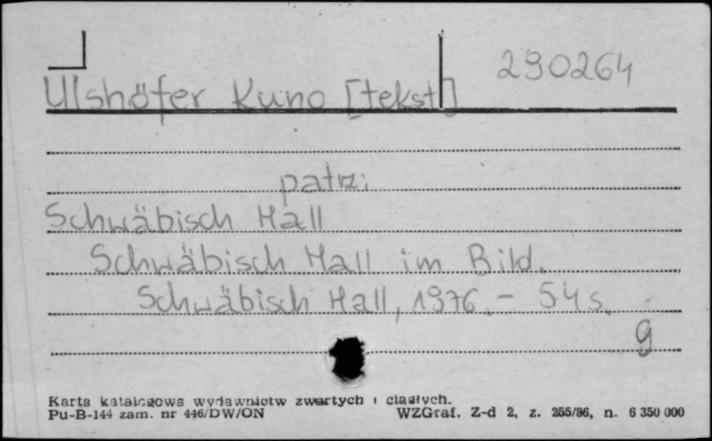 290264
Ulshöfer Kuno [tekst]
patrz:
Schwäbisch Hall
Schwäbisch Hall im Bild.
Schwäbisch Hall, 1976. – 54 s.
g
Karta katalogowa wydawnictw zwartych i ciągłych.
Pu-B-144 zam. nr 446/DW/ON WZGraf. Z-d 2, z. 255/86, n. 6 350 000